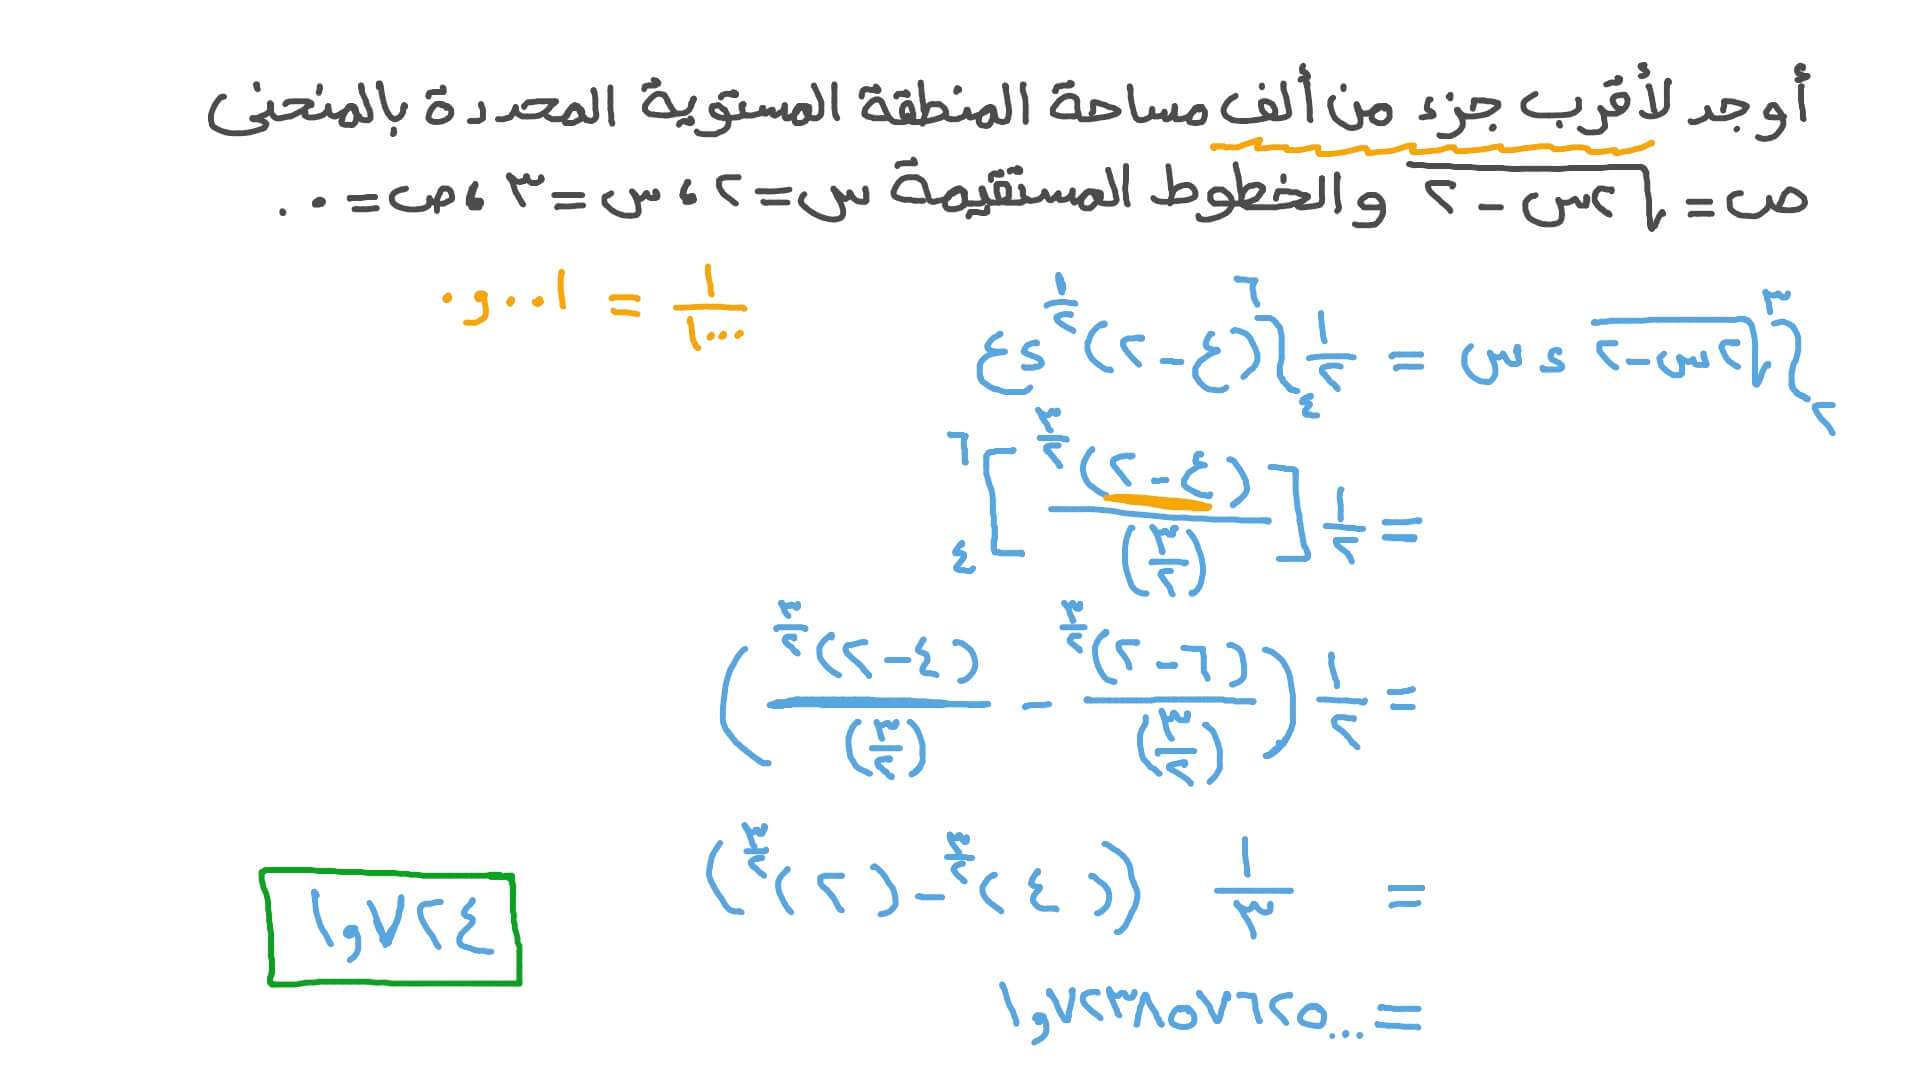 أوجد لأقرب جزء من ألف مساحة المنطقة المستوية المحددة بالمنحنى
ص = √(٢س − ٢) والخطوط المستقيمة س = ٢ ، س = ٣ ، ص = ٠ .
١/١٠٠٠ = ٠٫٠٠١
∫₂³ √(٢س − ٢) ءس = ١/٢ ∫₄⁶ (ع − ٢)^(١/٢) ءع
= ١/٢ [ (ع − ٢)^(٣/٢) / (٣/٢) ]₄⁶
= ١/٢ ( (٦ − ٢)^(٣/٢) / (٣/٢) − (٤ − ٢)^(٣/٢) / (٣/٢) )
= ١/٣ ( (٤)^(٣/٢) − (٢)^(٣/٢) )
= ١٫٧٢٣٨٥٧٦٢٥...
١٫٧٢٤